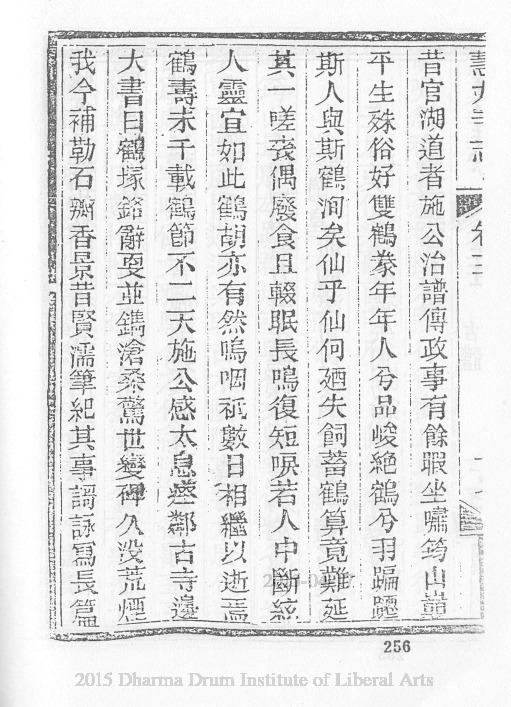 慧因寺志
卷三
昔官湖道者施公治譜傳政事有餘暇坐嘯筠山巔
平生殊俗好雙鶴豢年年人兮品峻絕鶴兮羽蹁躚
斯人與斯鶴泂矣仙乎仙何廼失飼蓄鶴算竟難延
其一嗟喪偶廢食且輟眠長鳴復短唳若人中斷絃
人靈宜如此鶴胡亦有然嗚咽祗數日相繼以逝焉
鶴壽未千載鶴節不二天施公感太息瘞鄰古寺邊
大書曰鶴塚銘辭更並鐫滄桑驚世變碑久没荒煙
我今補勒石爇香景昔賢濡筆紀其事謌詠寫長篇
256
2015 Dharma Drum Institute of Liberal Arts